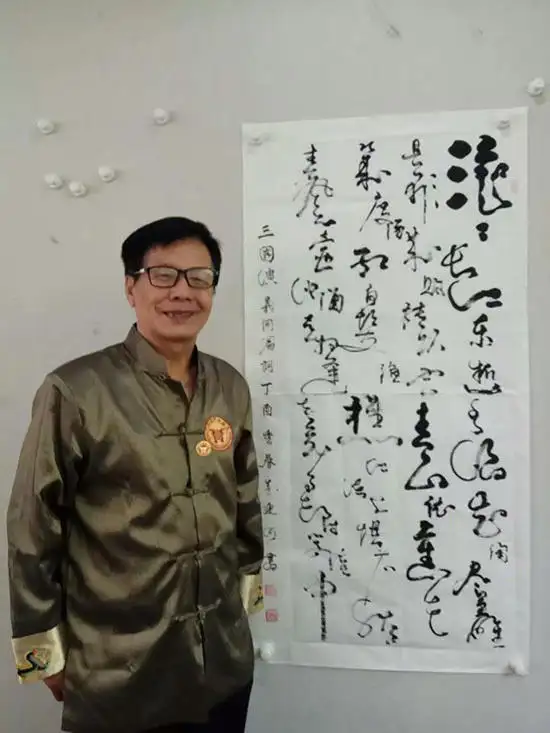 滚々长江东逝水浪花淘尽英雄
是非成败转头空青山依旧在
几度夕阳红白发渔樵江渚上惯看秋月
春风一壶浊酒喜相逢古今多少事都付笑谈中
三国演义开篇词丁酉季春建河书